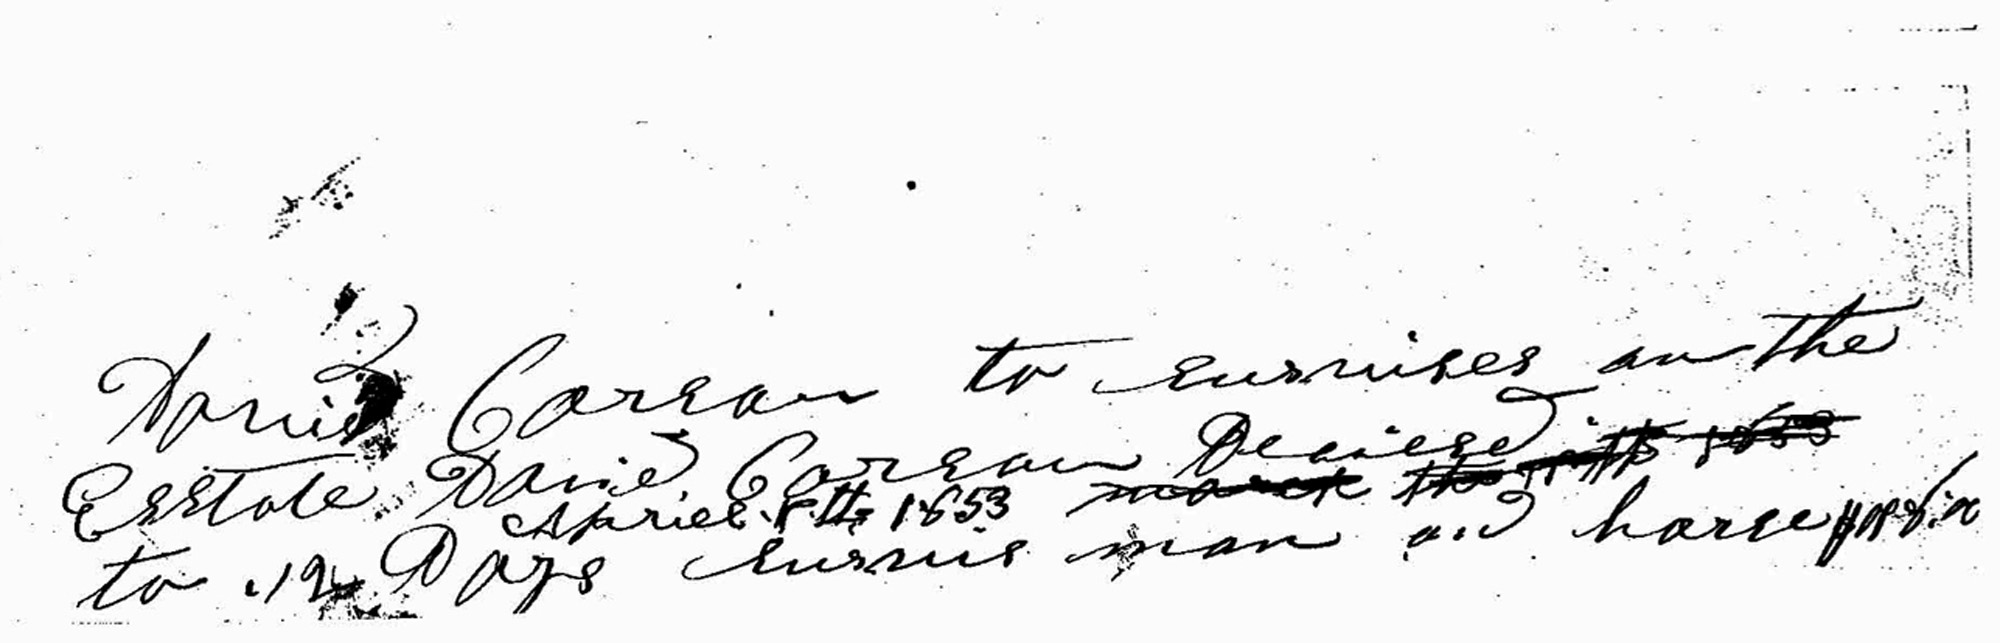 David Corsau to survises au the
Esstate David Corsau Deaiesed ~~march the 11th 1853~~
April 8th 1853
to 12 Days survis man and horse